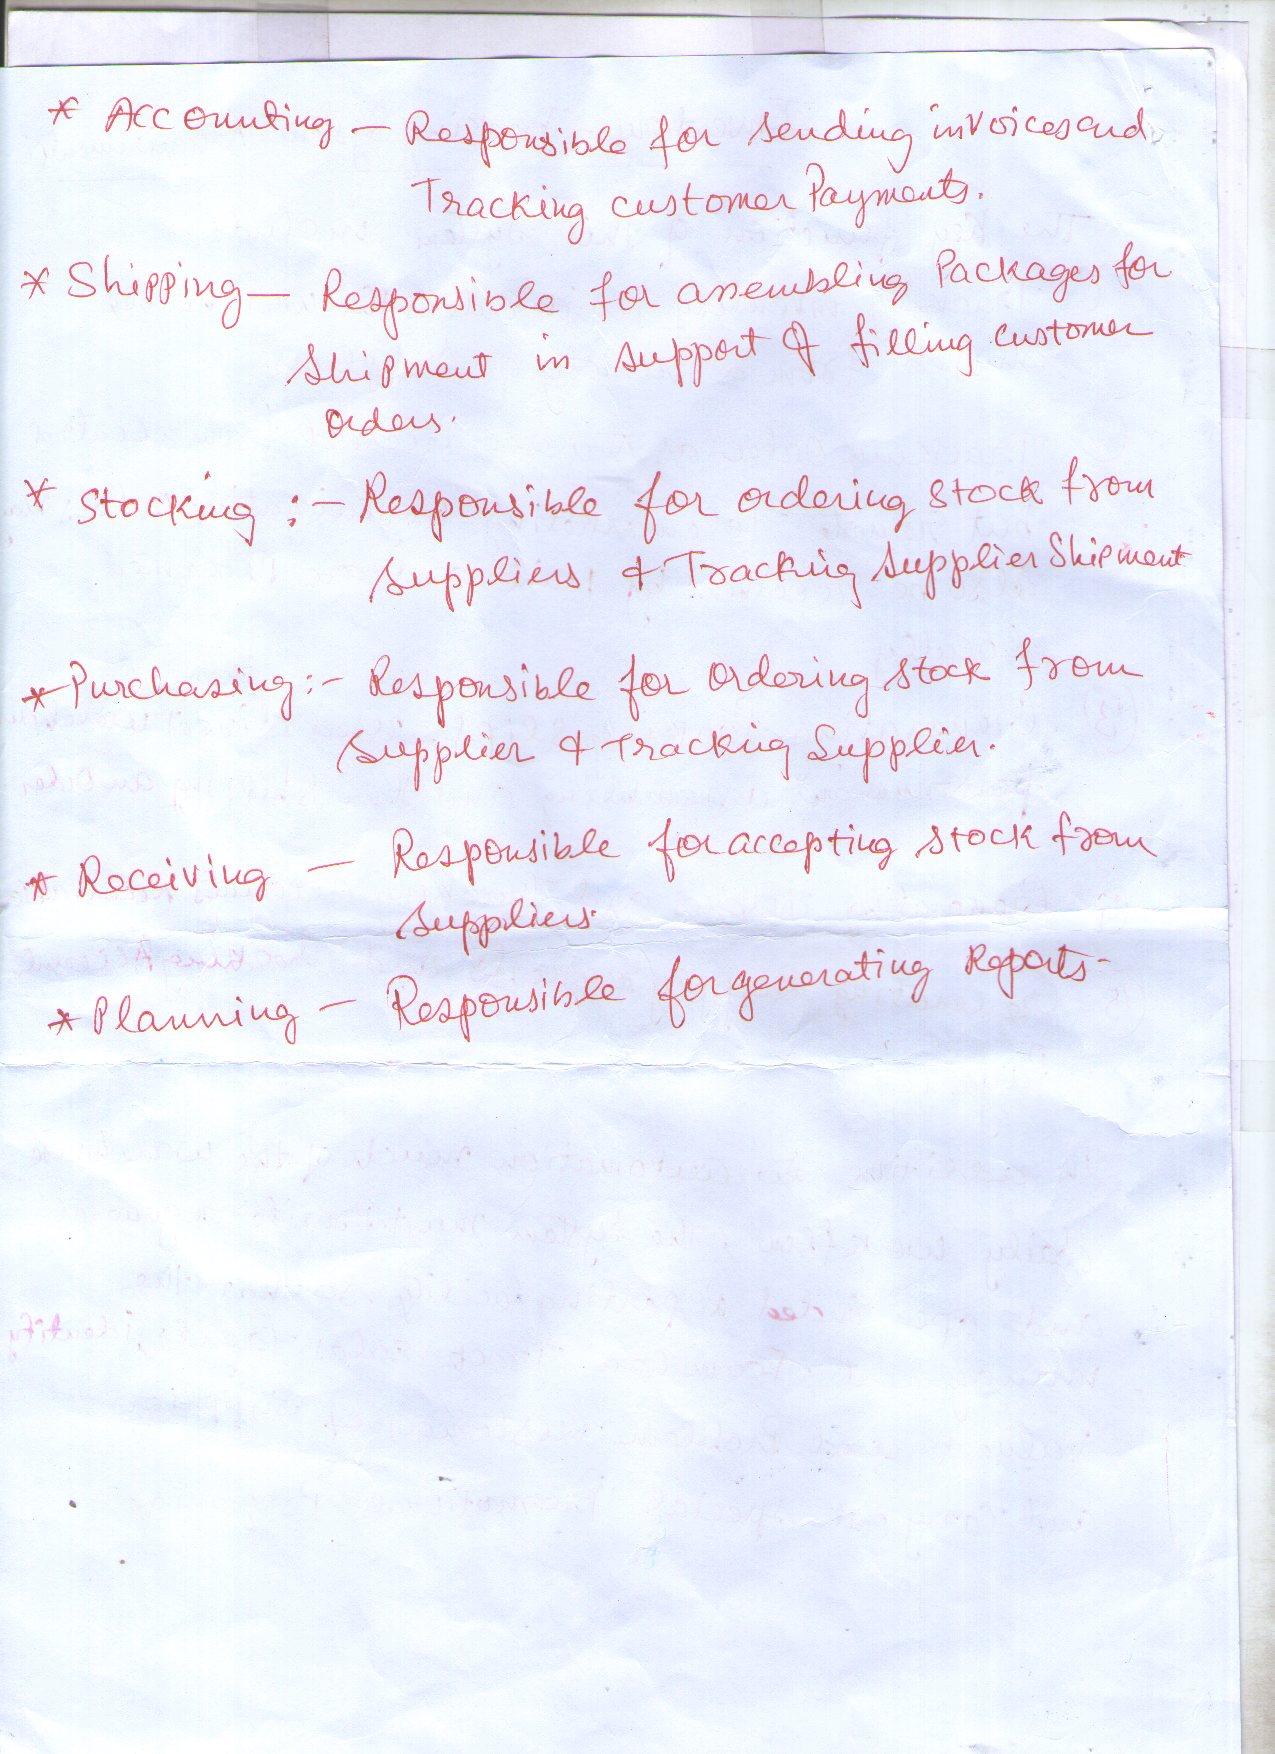 * Accounting — Responsible for sending invoices and
Tracking customer Payments.
* Shipping — Responsible for assembling Packages for
shipment in support of filling customer
orders.
* Stocking :- Responsible for ordering stock from
suppliers & Tracking supplier Shipment
* Purchasing :- Responsible for ordering stock from
supplier & Tracking Supplier.
* Receiving — Responsible for accepting stock from
suppliers.
* Planning — Responsible for generating Reports-